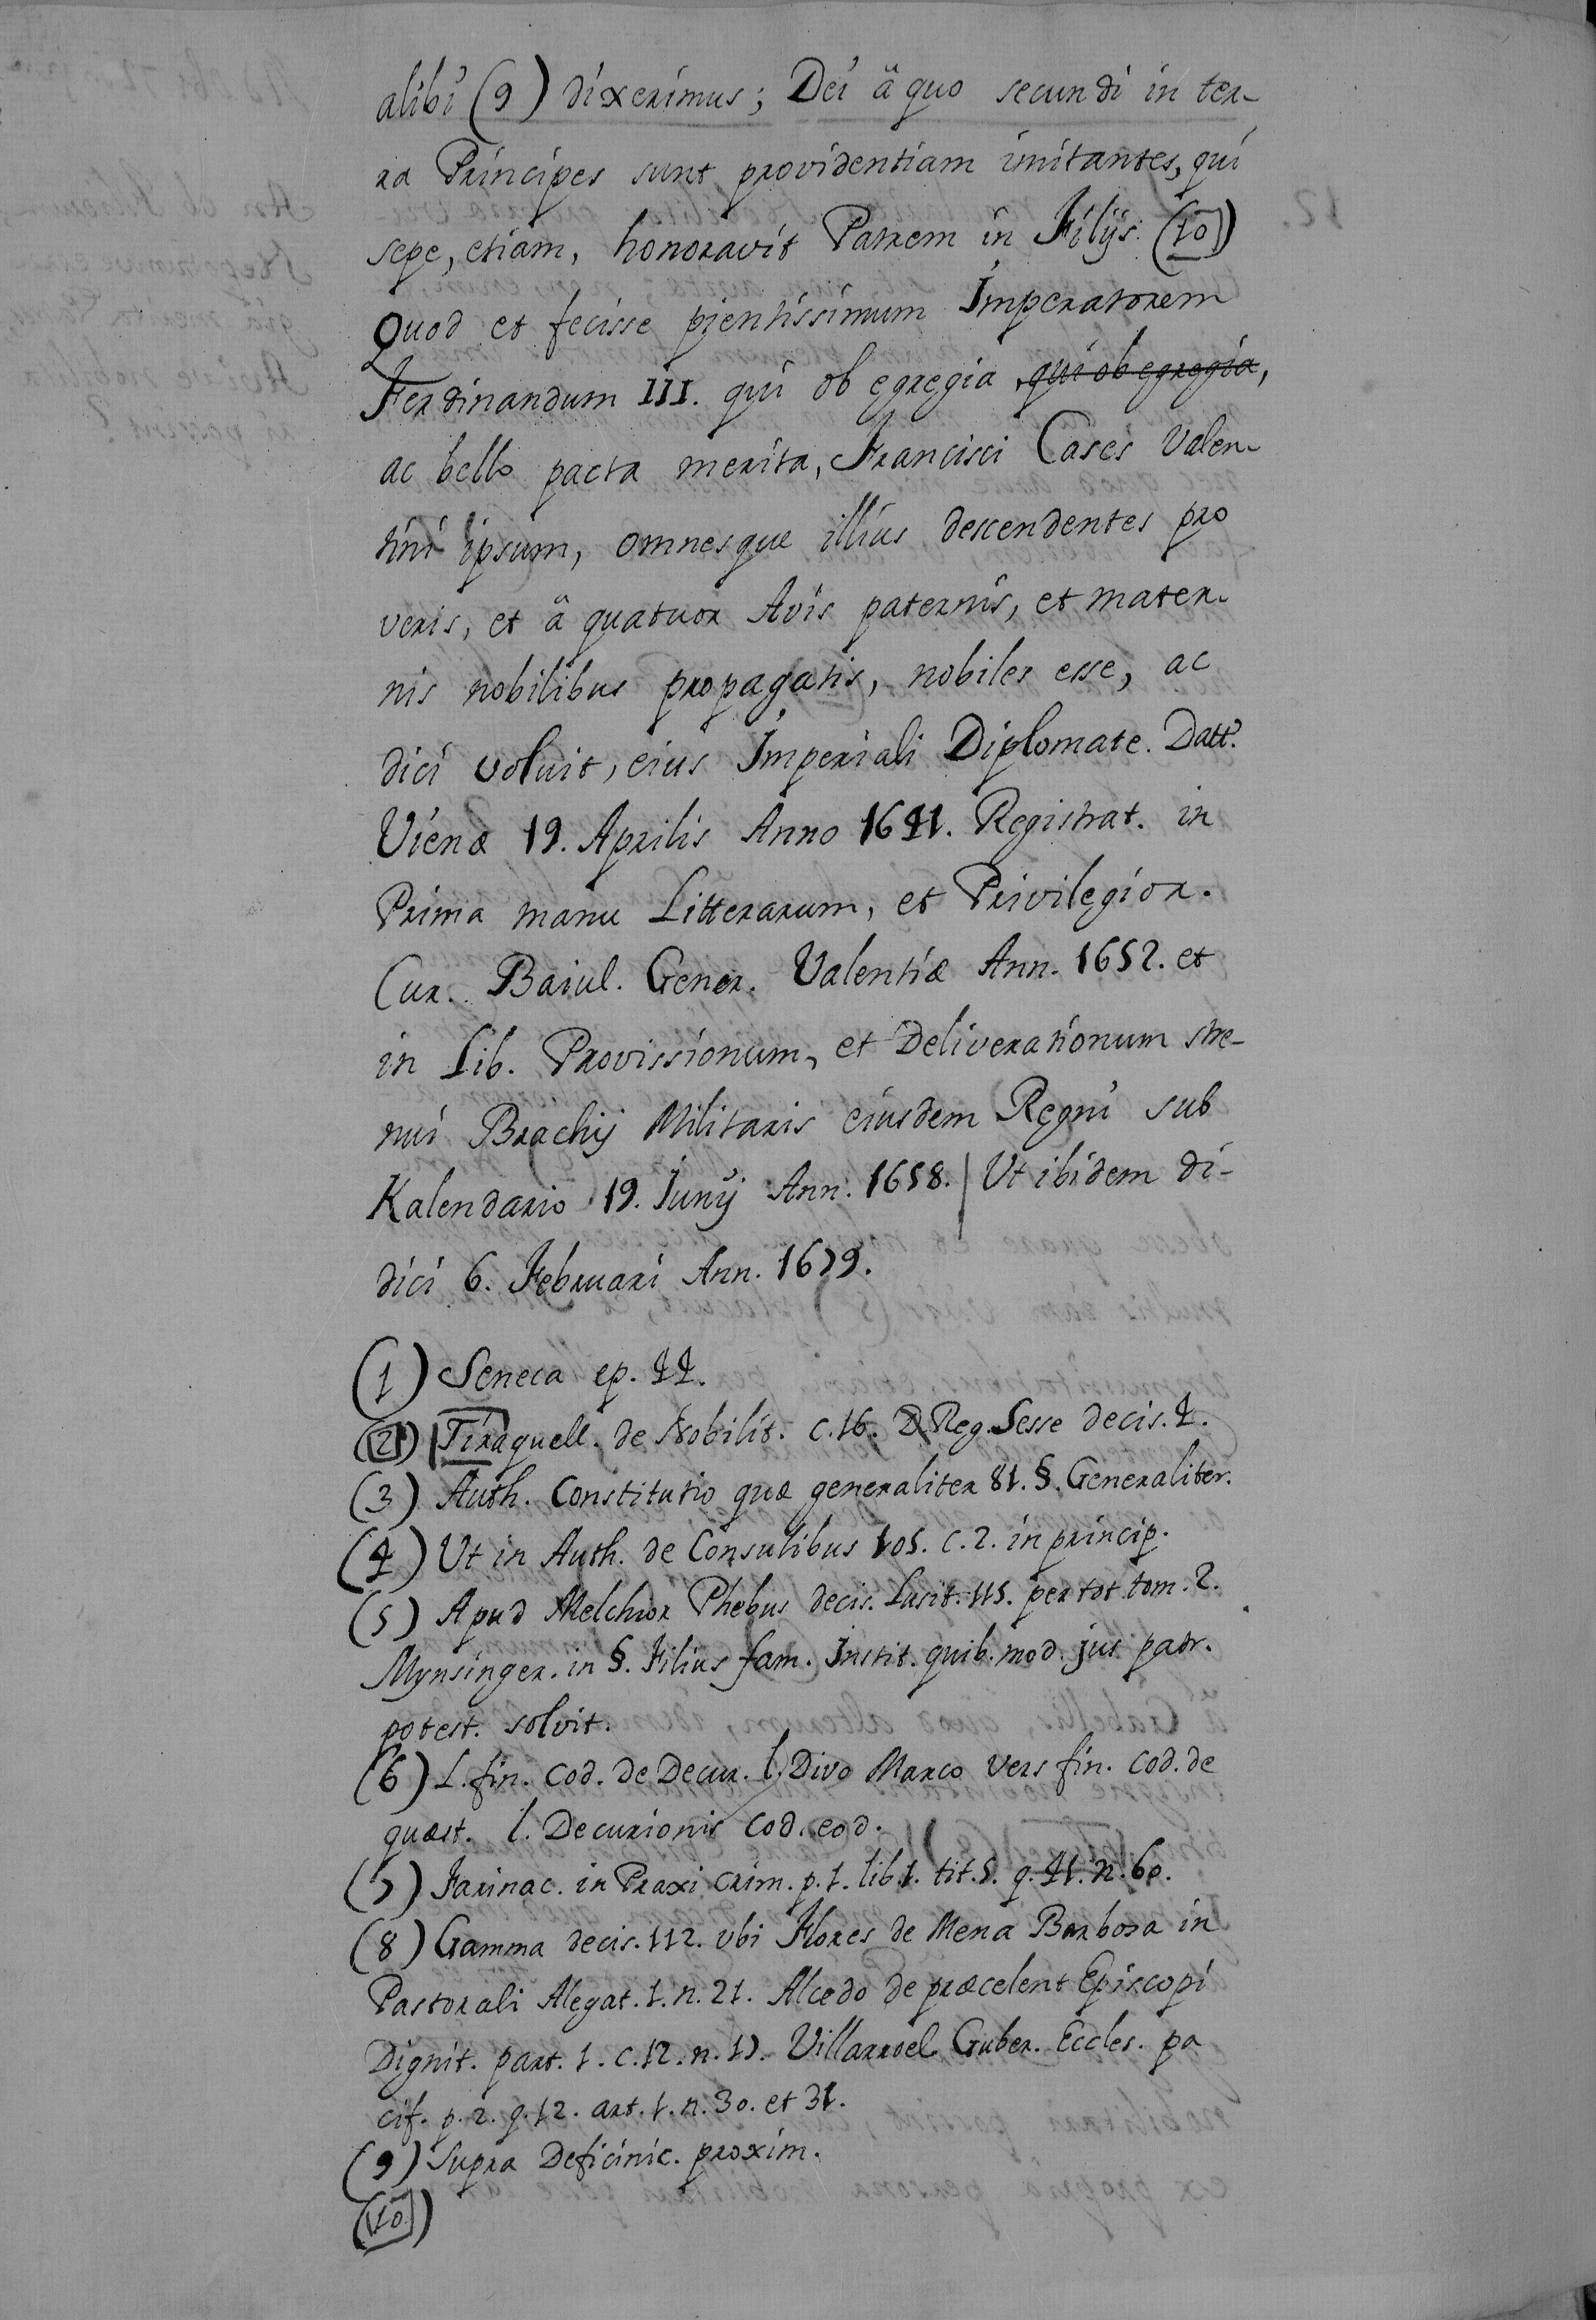 alibi (9) dixerimus; Dei â quo secundi in ter-
ra Principes sunt providentiam imitantes, qui
sepe, etiam, honoravit Patrem in Filijs. (10)
Quod et fecisse pientissimum Imperatorem
Ferdinandum III. qui ob egregia qui ob egregia,
ac bello pacta merita, Francisci Cases Valen-
tini ipsum, omnesque illius descendentes pro
veris, et â quatuor Avis paternis, et mater-
nis nobilibus propagatis, nobiles esse, ac
dici voluit, eius Imperiali Diplomate. Datt.
Vienæ 19. Aprilis Anno 1641. Registrat. in
Prima manu Litterarum, et Privilegior.
Cur. Baiul. Gener. Valentiæ Ann. 1652. et
in Lib. Provissionum, et Deliverationum stre-
nui Brachij Militaris eiusdem Regni sub
Kalendario 19. Iunij Ann. 1658. | Ut ibidem di-
dici 6. Februari Ann. 1679.
(1) Seneca ep. 44.
(2) Tiraquell. de Nobilit. c. 16. D. Reg. Sesse decis. 4.
(3) Auth. Constitutio quæ generaliter 81. §. Generaliter.
(4) Ut in Auth. de Consulibus 105. c. 2. in princip.
(5) Apud Melchior Phebus decis. Lusit. 115. per tot. tom. 2.
Mynsinger. in §. Filius fam. Instit. quib. mod. jus patr.
potest. solvit.
(6) L. fin. Cod. de Decur. l. Divo Marco vers fin. Cod. de
quæst. l. Decurionis Cod. eod.
(7) Farinac. in Praxi crim. p. 1. lib. 1. tit. 5. q. 41. n. 60.
(8) Gamma decis. 112. ubi Flores de Mena Barbosa in
Pastorali Alegat. 1. n. 21. Alcedo de præcelent Episcopi
Dignit. part. 1. c. 12. n. 17. Villarroel Guber. Eccles. pa
cif. p. 2. q. 12. art. 1. n. 30. et 31.
(9) Supra Deficinic. proxim.
(10)